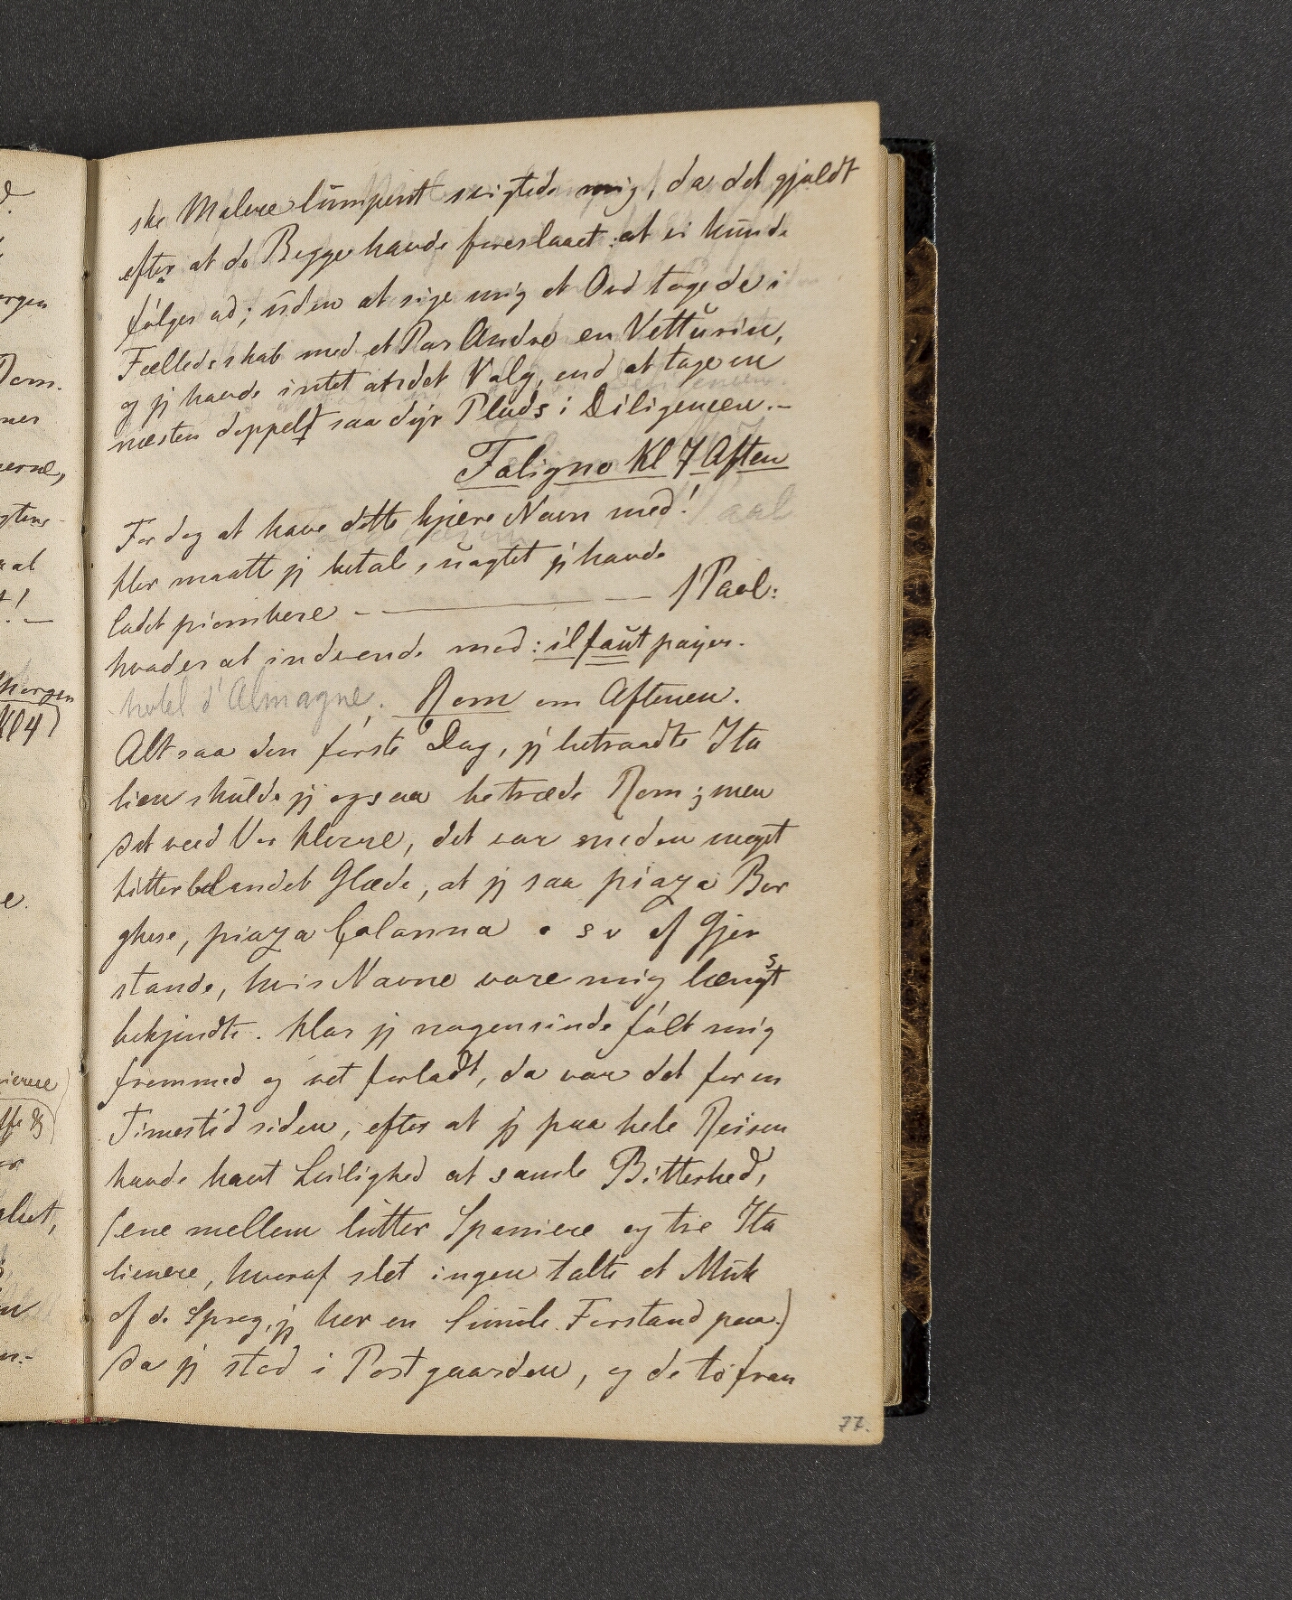 ske Malere lumpent svigtede mig, da det gjaldt
efter at de Begge havde foreslaaet: at vi kunde
følges ad; uden at sige mig et Ord toge de i
Fælledsskab med et Par Andre en Vetturin,
og jeg havde intet andet Valg, end at tage en
næsten doppelt saa dyr Plads i Diligencen.-
Foligno Kl 7 Aften
For dog at have dette kjære Navn med!
Her maatte jeg betale, uagtet jeg havde
ladet piombere - ——— — 1 Paol:
hvad er at indvende mod: il faut payer.
hotel d'Almagne. Rom om Aftenen.
Altsaa den første Dag, jeg betraadte Ita
lien skulde jeg ogsaa betræde Rom; men
det veed Vor Herre, det var med en meget
bitterblandet Glæde, at jeg saa piaza Bor
ghese, piaza Colonna o s v af Gjen
stande, hvis Navne vare mig længst
bekjendte. Har jeg nogensinde følt mig
fremmed og ret forladt, da var det for en
Timestid siden, efter at jeg paa hele Reisen
havde havt Leilighed at samle Bitterhed,
(ene mellem lutter Spaniere og tre Ita
lienere, hvoraf slet ingen talte et Muk
af de Sprog, jeg har en Smule Forstand paa.)
da jeg stod i Postgaarden, og de to fran
77.